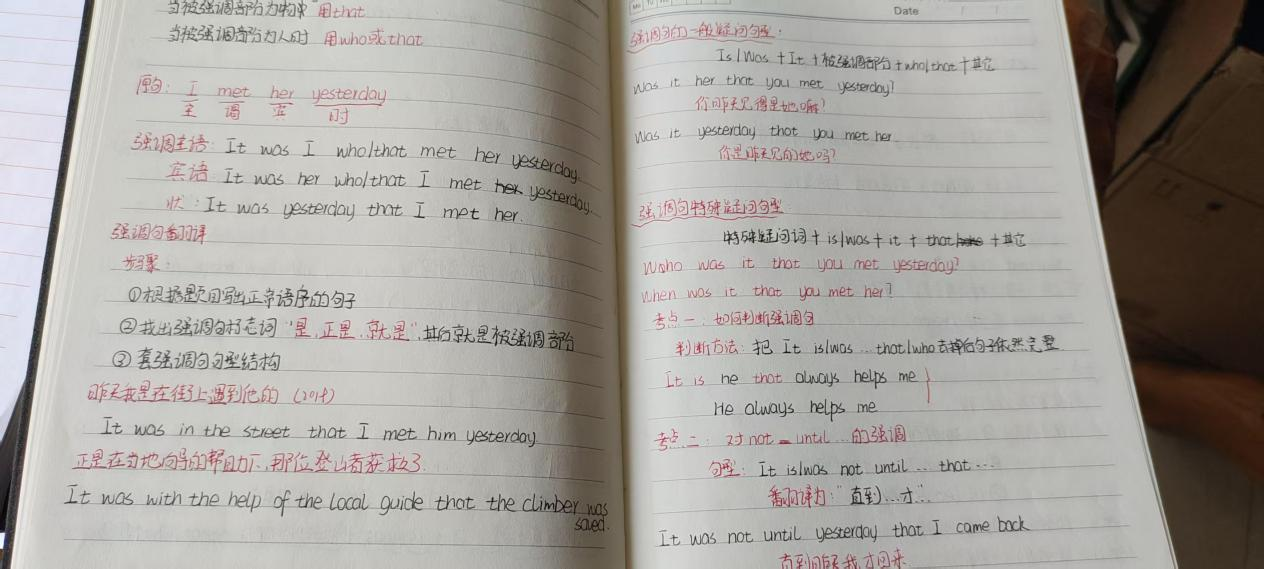 当被强调部分为物时 用that
当被强调部分为人时 用who或that
原句: I met her yesterday
主 谓 宾 时
强调主语: It was I who/that met her yesterday.
宾语: It was her who/that I met her yesterday.
状: It was yesterday that I met her.
强调句翻译
步骤:
①根据题目写出正常语序的句子
②找出强调句标志词 "是、正是、就是",其后就是被强调部分
③套强调句句型结构
昨天我是在街上遇到他的 (2014)
It was in the street that I met him yesterday.
正是在当地向导的帮助下,那位登山者获救了.
It was with the help of the local guide that the climber was
saved.
Mo Tu
Date
强调句的一般疑问句型:
Is/Was + It + 被强调部分 + who/that + 其它
Was it her that you met yesterday?
你昨天见得是她嘛?
Was it yesterday that you met her
你是昨天见的她吗?
强调句特殊疑问句型
特殊疑问词 + is/was + it + that + 其它
Who was it that you met yesterday?
When was it that you met her?
考点一: 如何判断强调句
判断方法: 把 It is/was … that/who 去掉后句子依然完整
It is he that always helps me
He always helps me
考点二: 对 not … until … 的强调
句型: It is/was not until … that …
翻译为: "直到…才"
It was not until yesterday that I came back
直到昨天我才回来